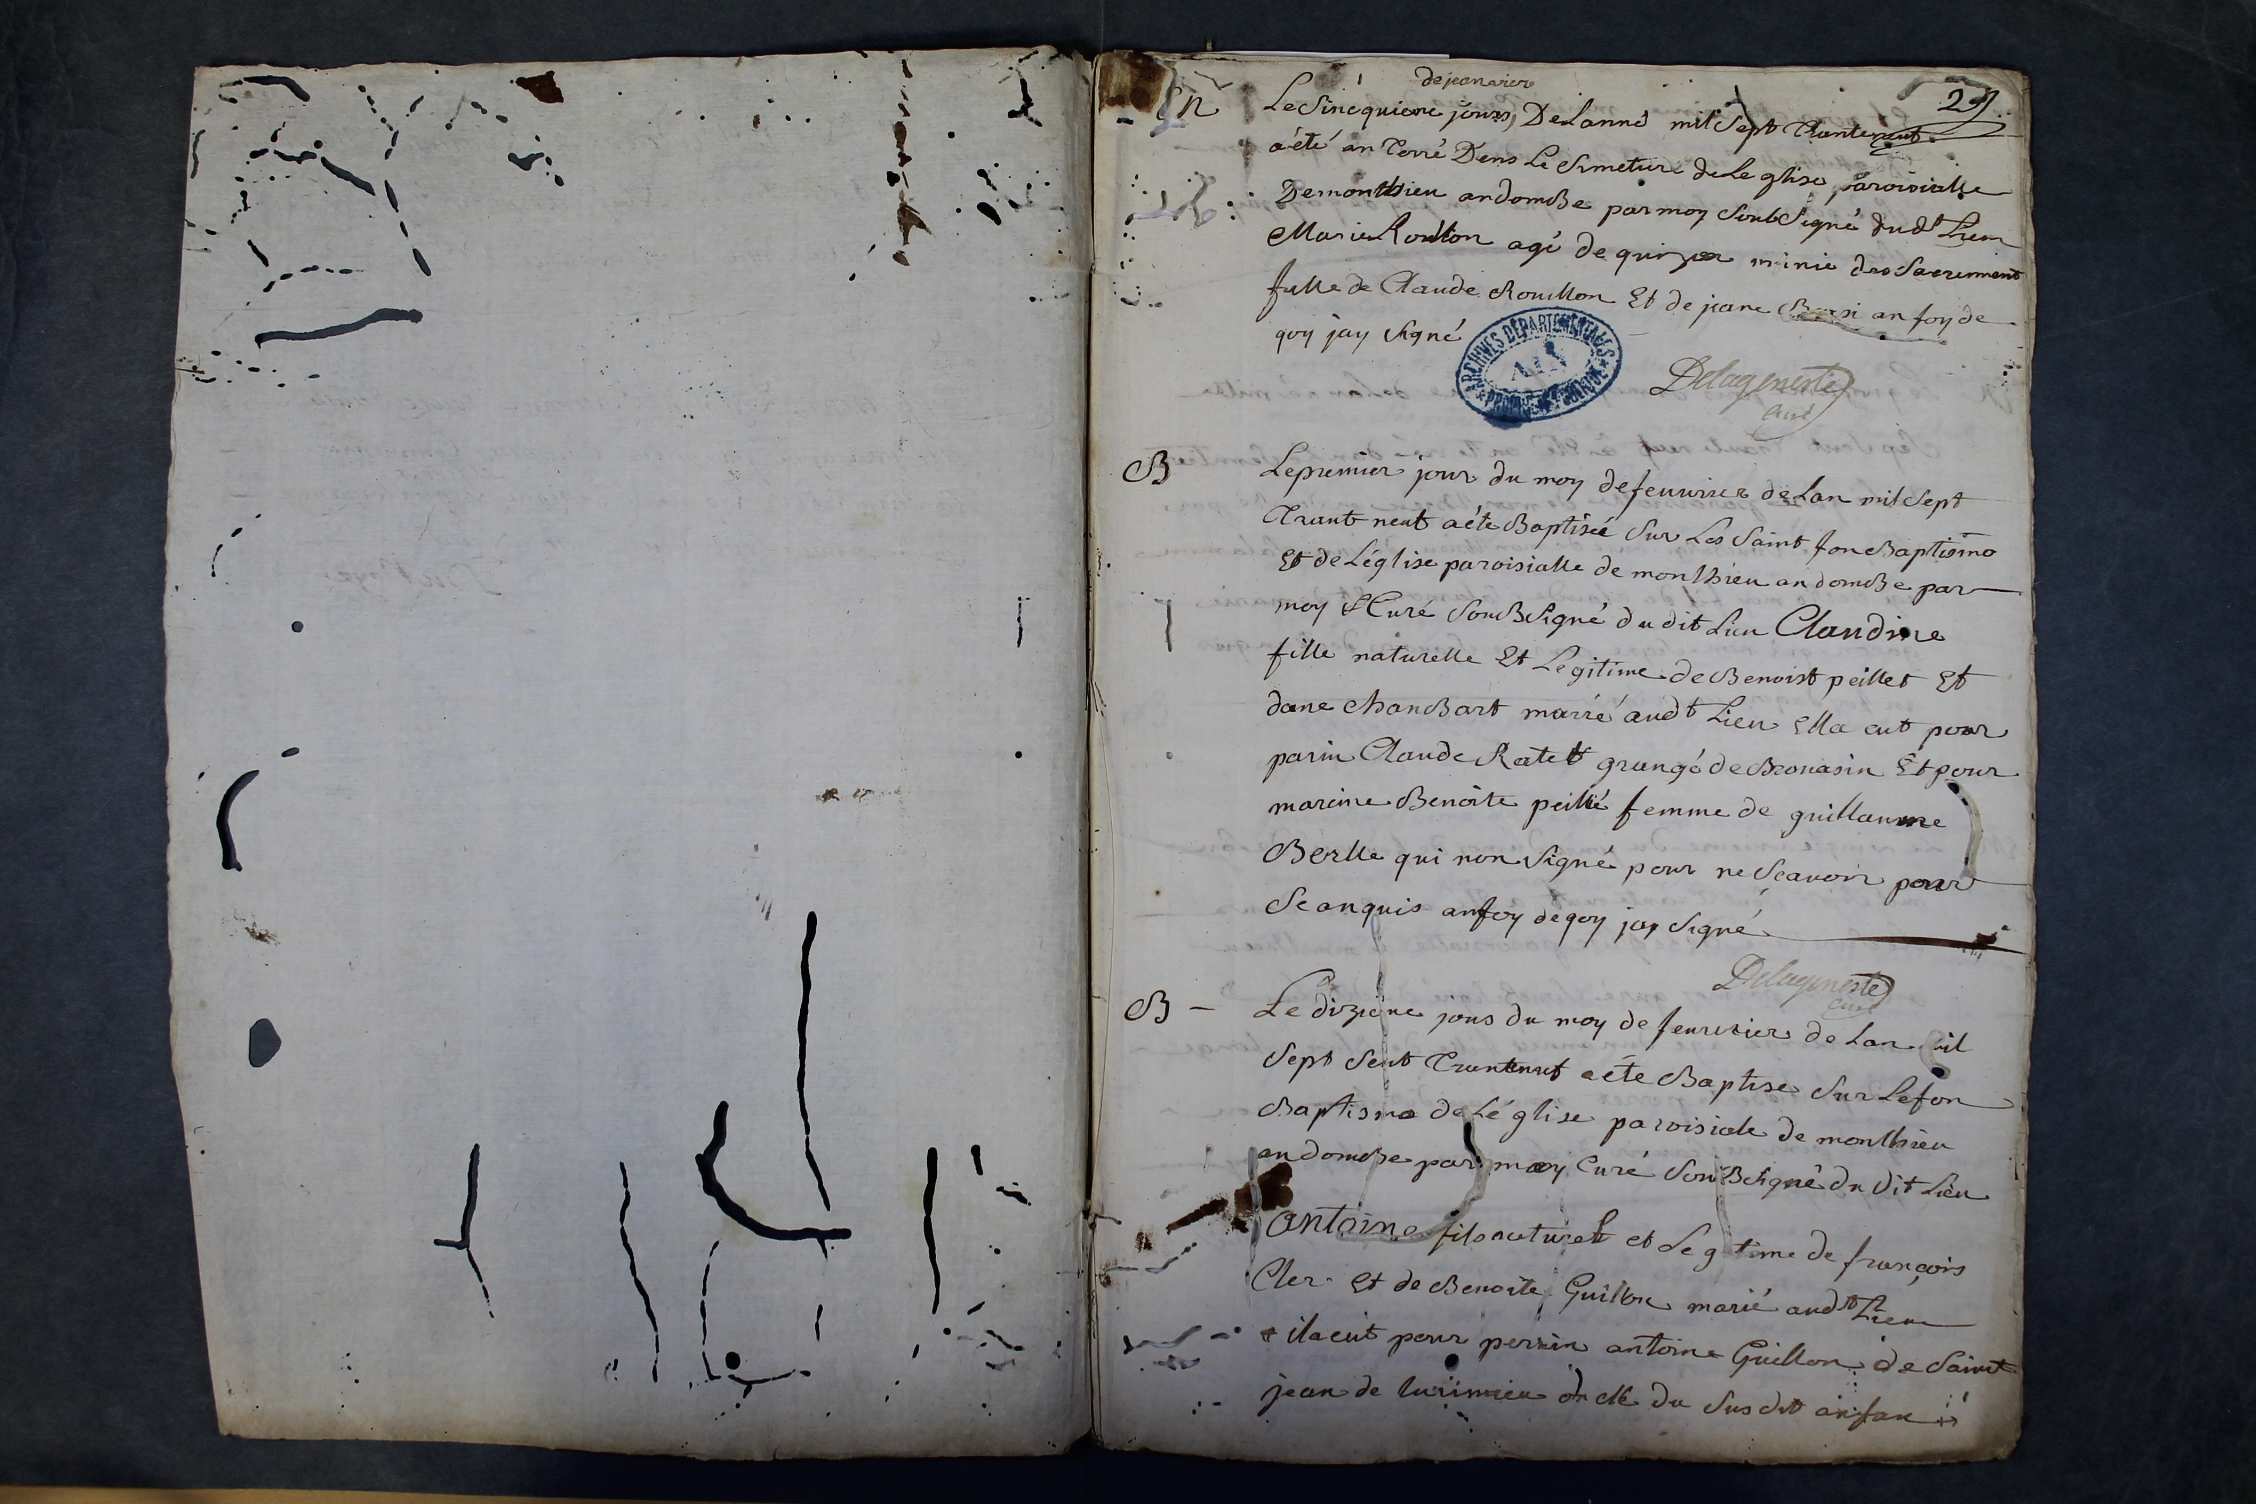 29
de jeanvier
Le Sincquieme jours, De Lanné mil Sept Trante neuf
a été an Terré Dens Le Simetiere de Le glise paroisialle
De monthieu an dombe par moy SoubSigné du dt Lieu
Marie Roullon agé de quinze minie des Sacrement
fulle de Claude Rouillon Et de jeane an foy de
qoy jay Signé
ARCHIVES DÉPARTEMENTALES
AIN
Delageneste
Curé
B
Le premier jour du moy de feuvrier de Lan mil Sept
Trant neuf a éte Baptiseé Sur Les Saint fon Baptismo
Et de L'église paroisialle de monthieu an dombe par
moy Curé SoubSigné du dit Lieu Claudine
fille naturelle Et Legitime de Benoist peillet Et
dane chanbart marié aud t Lieu Ella eut pour
parin Claude Ratet grangé de Et pour
mareine Benoite peillé femme de guillaume
Berlle qui non Signé pour ne Scavoir pour
Se anquis an foy de qoy jay Signé
Delageneste
Curé
B -
Le dizieme jous du moy de feuvrier de Lan mil
Sept Sent Trantneuf a éte Baptise Sur Le fon
Baptismo de Lé glise paroisiale de monthieu
an dombe par moy Curé SouBsigné du dit Lieu
antoine fils naturel et Legitime de françois
Cler Et de Benoite Guillon marié aud t Lieu
il a eut pour perrin antoine Guillon de Saint
jean de turimieu oncle du Susdit anfan